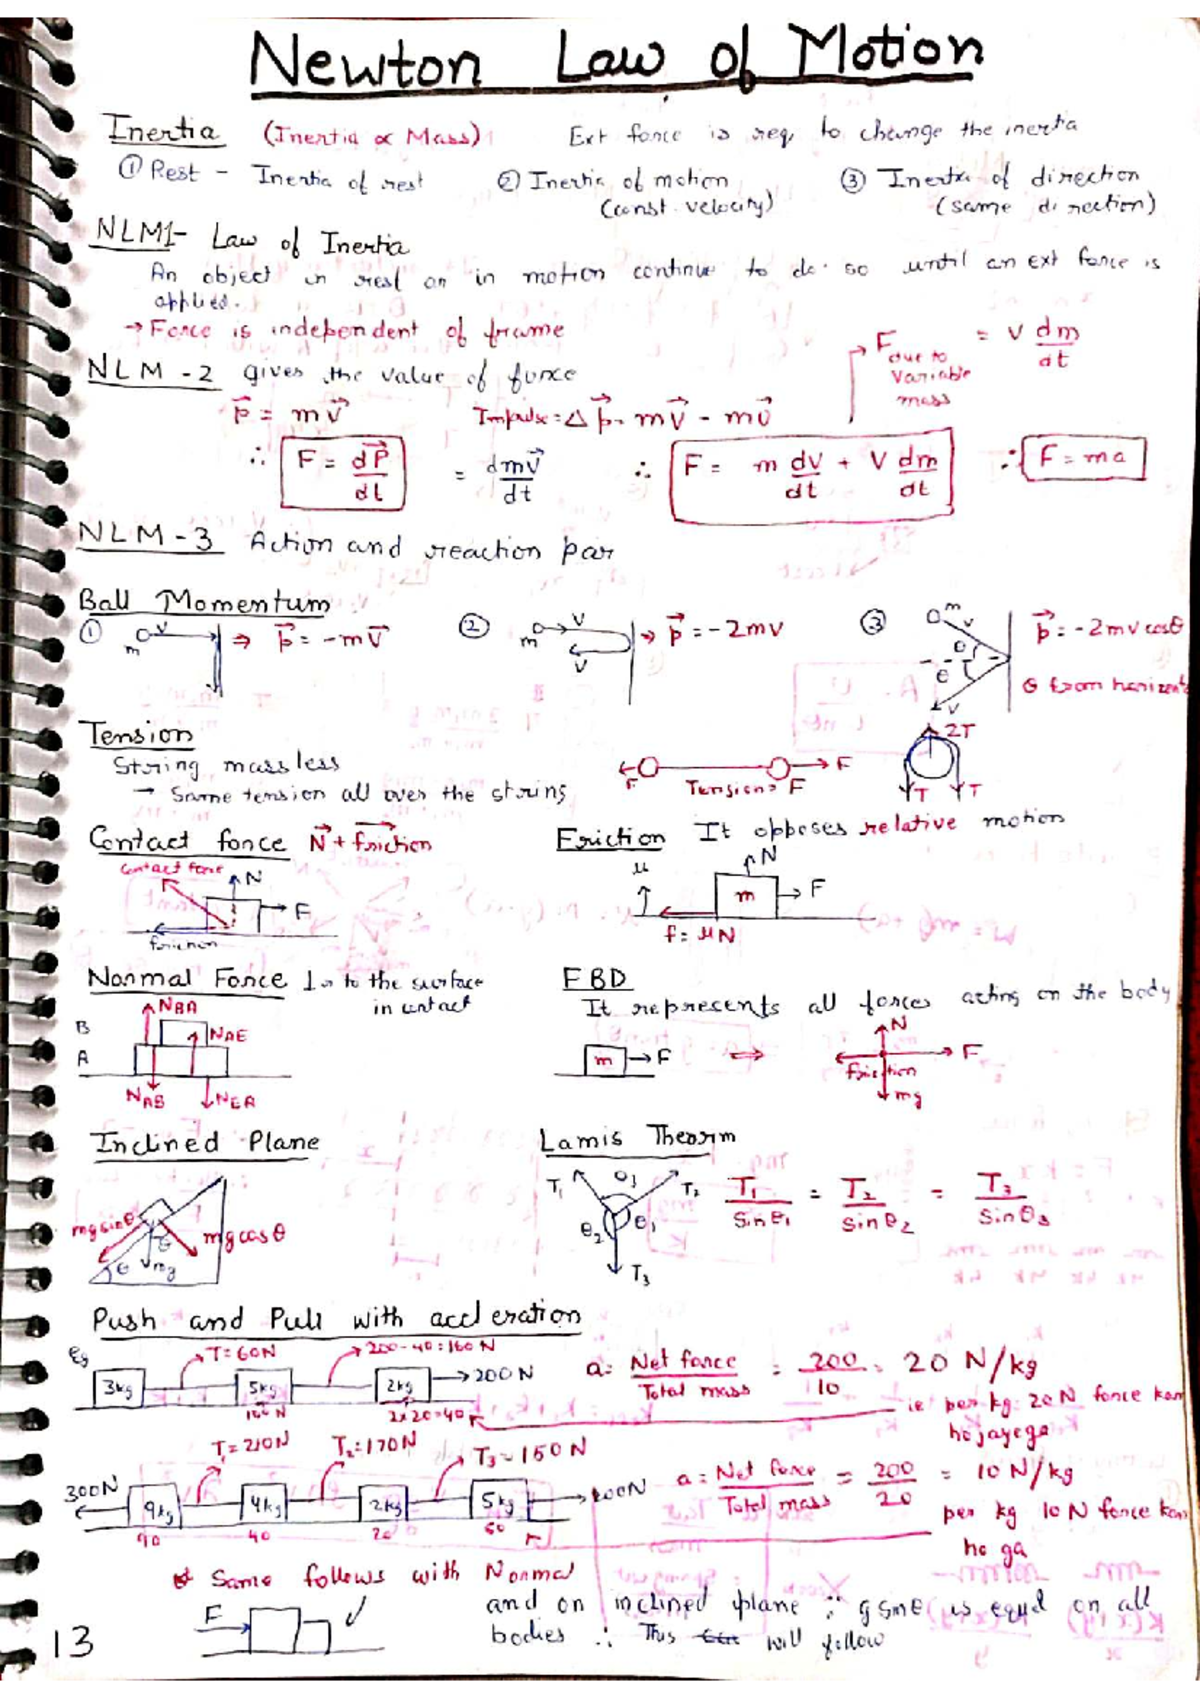 Newton Law of Motion
Inertia (Inertia ∝ Mass) Ext force is req. to change the inertia
① Rest - Inertia of rest ② Inertia of motion (const. velocity) ③ Inertia of direction (same direction)
NLM1- Law of Inertia
An object in rest or in motion continue to do so until an ext force is
applied.
→ Force is independent of frame
NLM-2 gives the value of force
F due to variable mass = v dm/dt
p⃗ = mv⃗ Impulse = Δp⃗ = mv⃗ - mu⃗
∴ F = dP⃗/dt = dmv⃗/dt ∴ F = m dv/dt + v dm/dt ∴ F = ma
NLM-3 Action and reaction pair
Ball Momentum
① m v ⇒ p⃗ = -mv⃗ ② m v v → p⃗ = -2mv ③ m v θ θ v p⃗ = -2mv cosθ
θ from horizont
Tension
String massless
→ Same tension all over the string
F Tension = F F
2T T T
Contact force N⃗ + friction
contact force N F friction
Friction It opposes relative motion
μ N m F
f = μN
Normal Force ⊥r to the surface
in contact
B A N_BA N_AE N_AB N_EA
FBD
It represents all forces acting on the body
m → F ⇔ N F friction mg
Inclined Plane
mg sinθ mg cosθ θ θ mg
Lamis Theorm
T₁ θ₃ T₂ θ₂ θ₁ T₃
T₁/sinθ₁ = T₂/sinθ₂ = T₃/sinθ₃
Push and Pull with accleration
Eg T = 60N 200-40 = 160 N
3kg 5kg 2kg → 200N
100 N 2x20=40
a = Net force/Total mass = 200/10 = 20 N/kg
ie per kg 20N force kam
hojayega
T₁ = 210N T₂ = 170N T₃ = 150N
300N 9kg 4kg 2kg 5kg
90 40 20
a = Net force/Total mass = 200/20 = 10 N/kg
per kg 10 N force kam
ho ga
Same follows with Normal
and on inclined plane ∵ g sinθ is equal on all
bodies ∴ This will follow
F
13